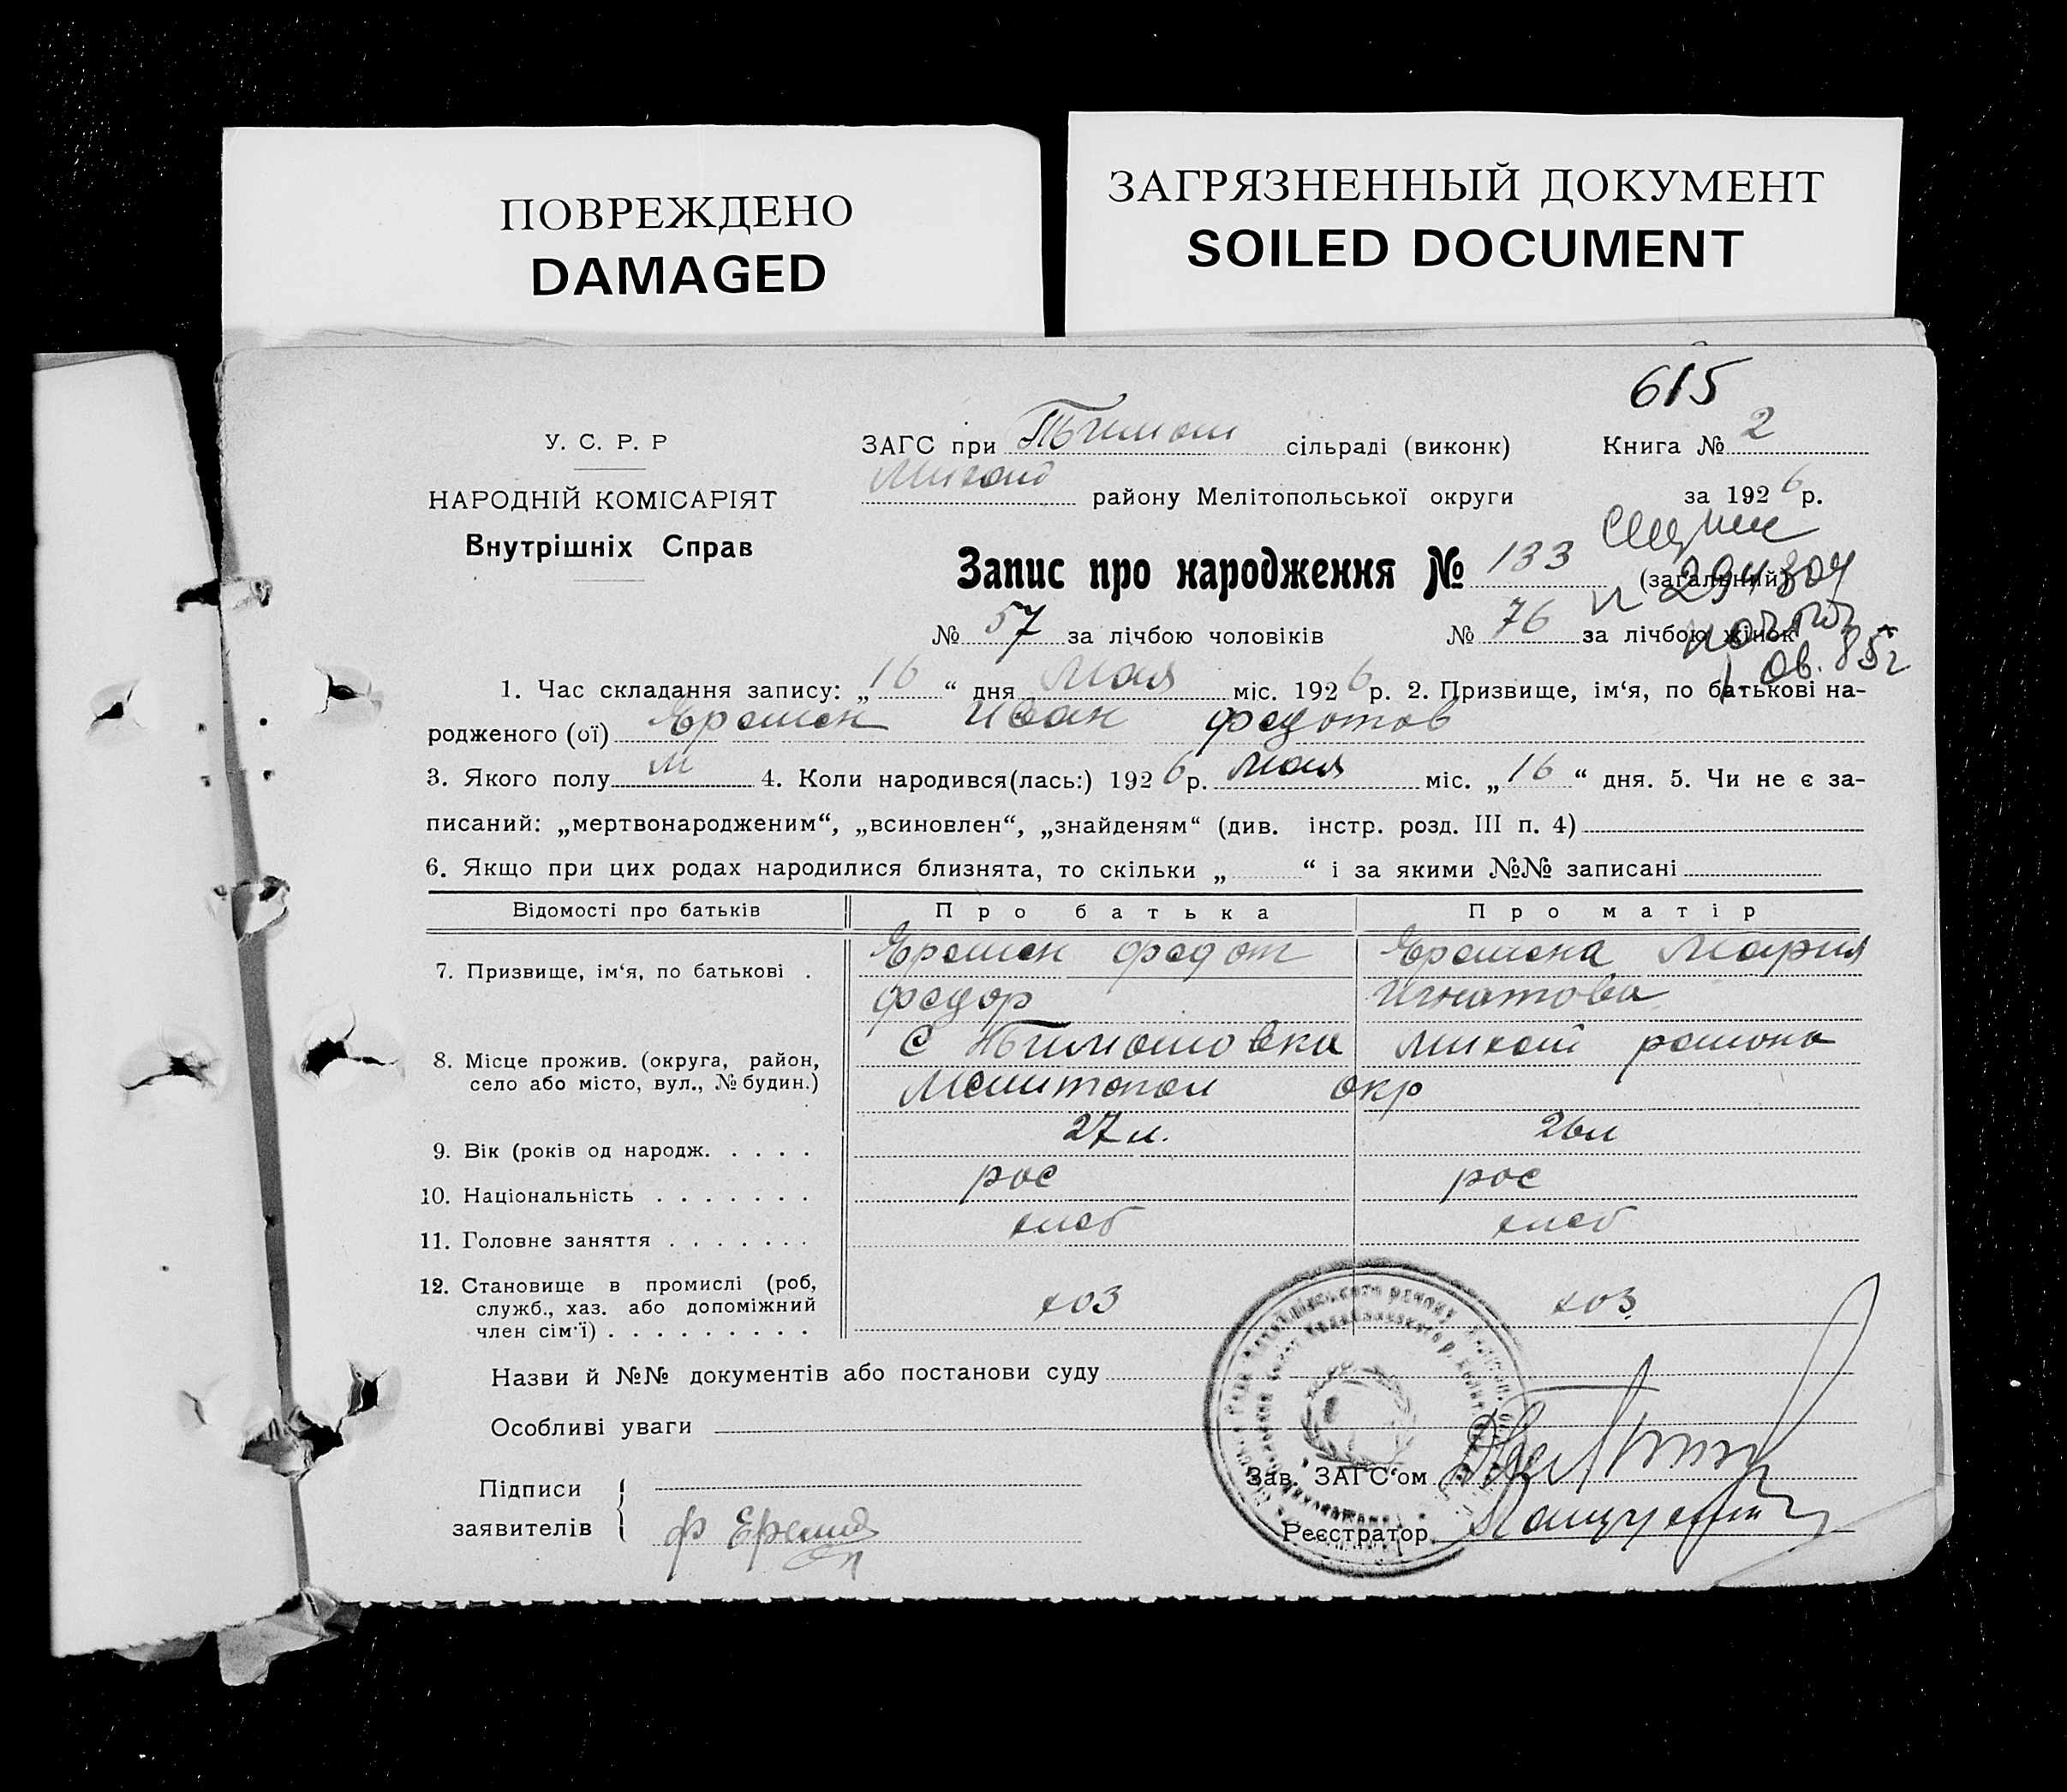 ПОВРЕЖДЕНО
DAMAGED
ЗАГРЯЗНЕННЫЙ ДОКУМЕНТ
SOILED DOCUMENT
615
У. С. Р. Р
НАРОДНІЙ КОМІСАРІЯТ
Внутрішніх Справ
ЗАГС при Тымош сільраді (виконк) Книга № 2
Михай району Мелітопольської округи за 1926 р.
Запис про народження № 133 (загальний)
№ 57 за лічбою чоловіків № 76 за лічбою жінок
1 85г
1. Час складання запису: „16“ дня Мая міс. 1926 р. 2. Призвище, ім‘я, по батькові на-
родженого (ої) Ерёмен Иван Федотов
3. Якого полу м 4. Коли народився(лась:) 1926 р. Мая міс. „16“ дня. 5. Чи не є за-
писаний: „мертвонародженим“, „всиновлен“, „знайденям“ (див. інстр. розд. III п. 4)
6. Якщо при цих родах народилися близнята, то скільки „ “ і за якими №№ записані
Відомості про батьків Про батька Про матір
7. Призвище, ім‘я, по батькові . Еремен Федот Еремена Мария
Федор Игнатова
8. Місце прожив. (округа, район, С Тымошовка Михай района
село або місто, вул., № будин.) Мелитопол окр
9. Вік (років од народж. . . . . 27 л. 26 л
10. Національність . . . . . . . рос рос
11. Головне заняття . . . . . . . хлеб хлеб
12. Становище в промислі (роб,
служб., хаз. або допоміжний хоз хоз
член сім‘ї) . . . . . . . . .
Назви й №№ документів або постанови суду
Особливі уваги
Підписи
заявителів
Ф Еремен
Зав. ЗАГС‘ом
Реєстратор